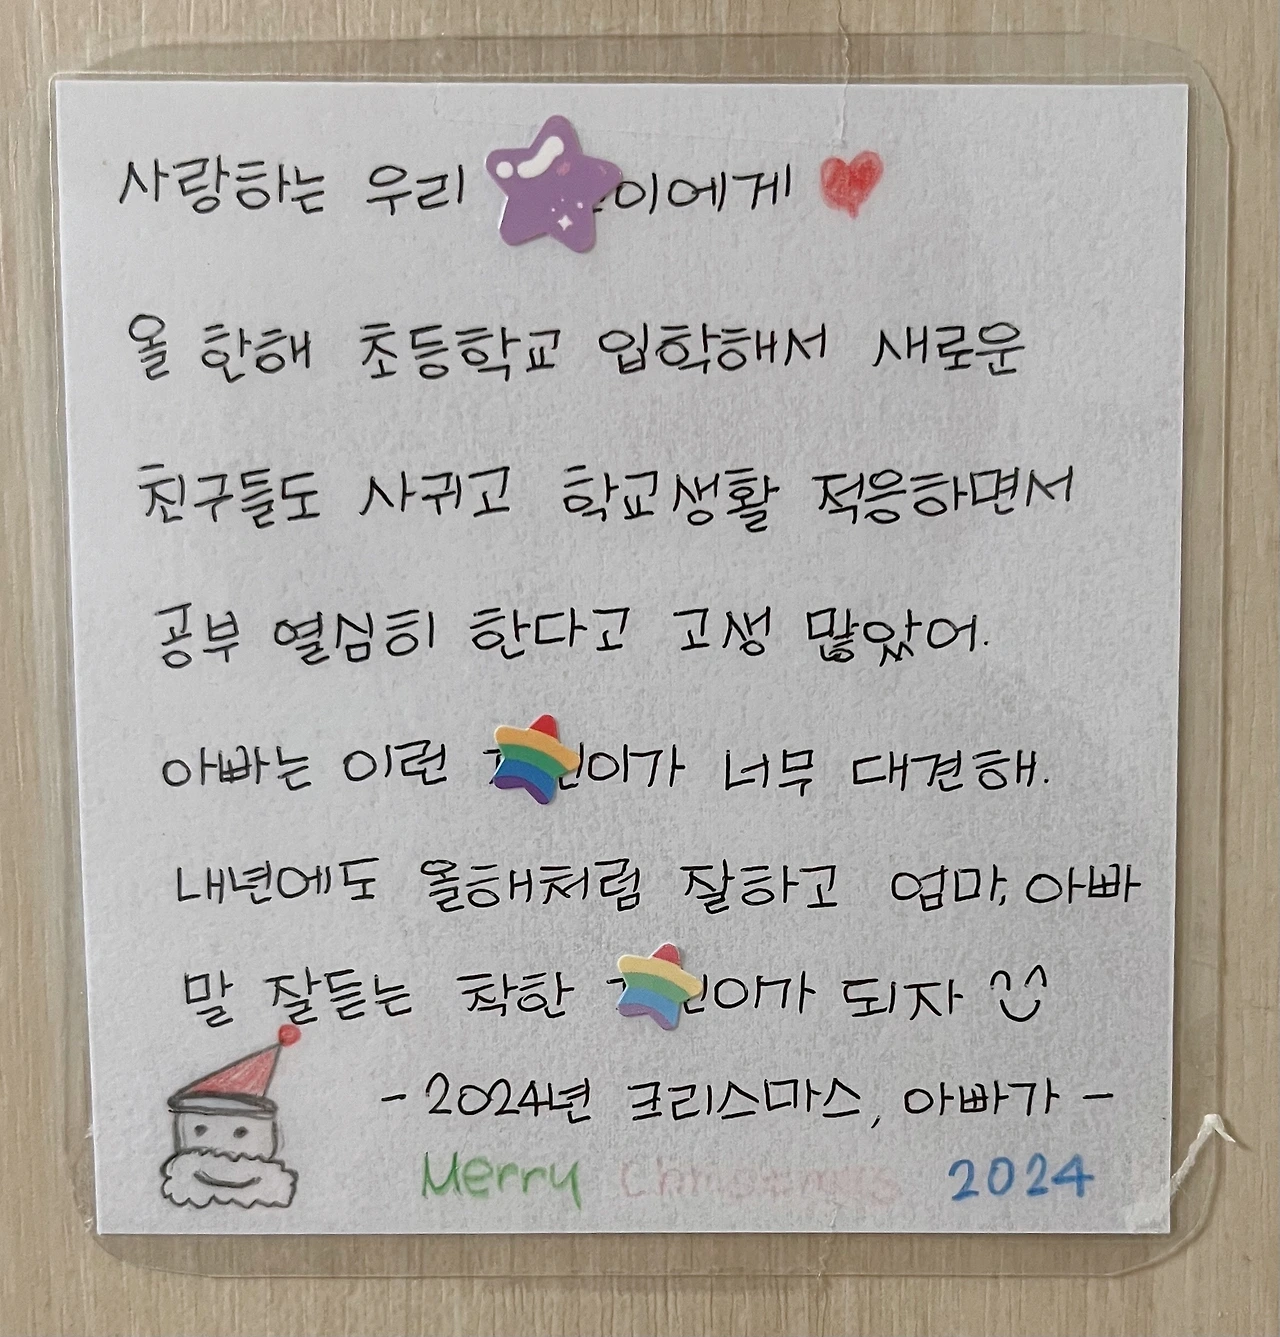 사랑하는 우리 이에게
올 한해 초등학교 입학해서 새로운
친구들도 사귀고 학교생활 적응하면서
공부 열심히 한다고 고생 많았어.
아빠는 이런 이가 너무 대견해.
내년에도 올해처럼 잘하고 엄마, 아빠
말 잘듣는 착한 이가 되자
- 2024년 크리스마스, 아빠가 -
Merry Christmas 2024